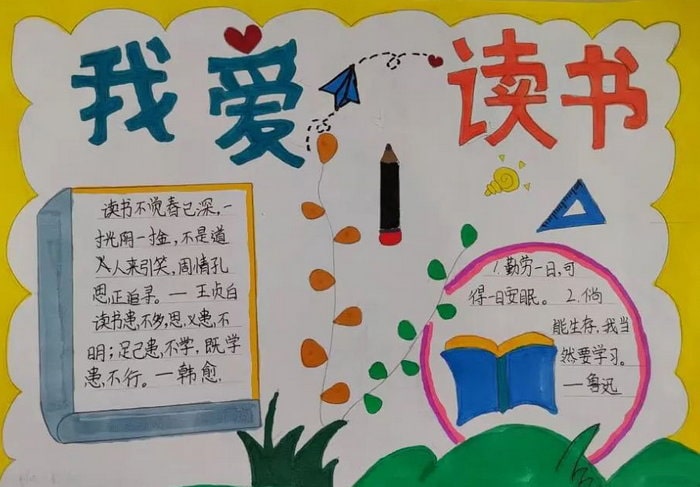 我爱读书
读书不觉春已深，一
寸光阴一寸金，不是道
人来引笑，周情孔
思正追寻。— 王贞白
读书患不多，思义患不
明；足己患不学，既学
患不行。— 韩愈
1. 勤劳一日，可
得一日安眠。 2. 倘
能生存，我当
然要学习。
— 鲁迅